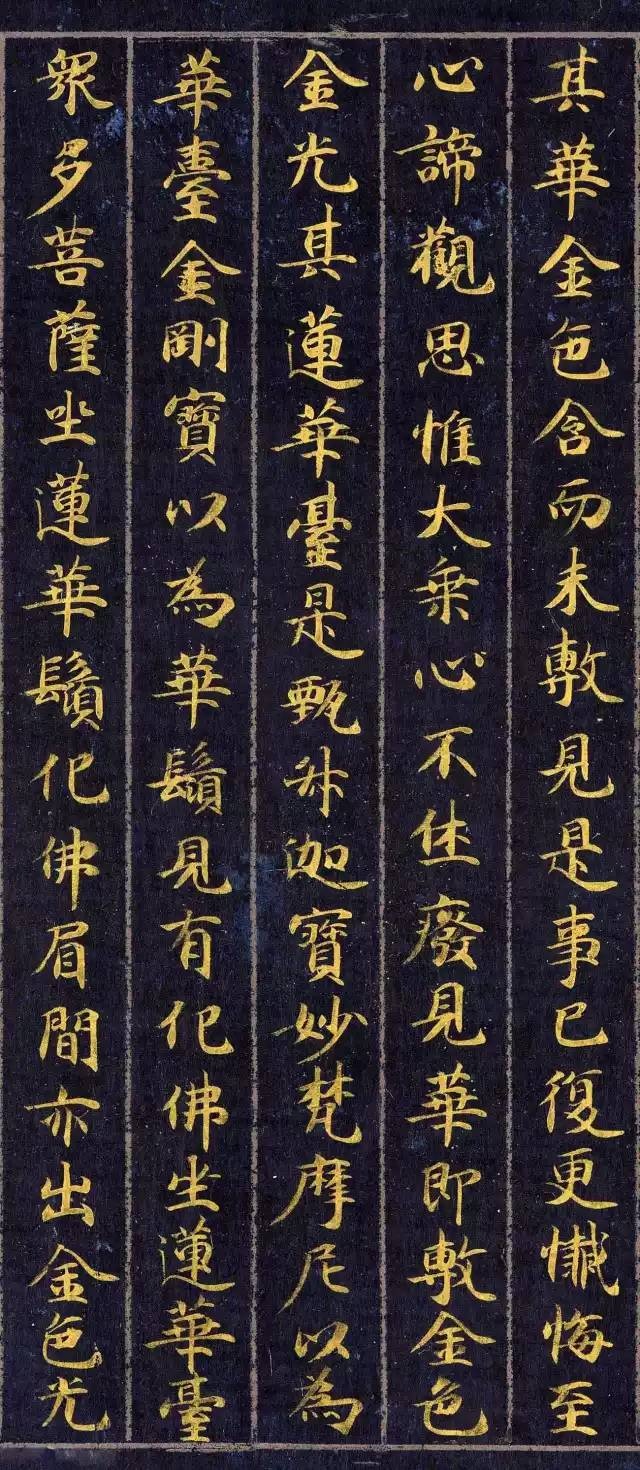 其華金色含而未敷見是事已復更懺悔至
心諦觀思惟大乗心不休廢見華即敷金色
金光其蓮華臺是甄升伽寶妙梵摩尼以為
華臺金剛寶以為華鬚見有化佛坐蓮華臺
衆多菩薩坐蓮華鬚化佛眉間亦出金色光